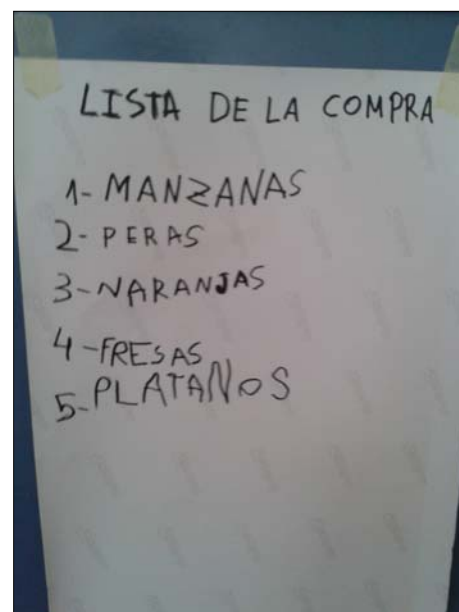 LISTA DE LA COMPRA
1- MANZANAS
2- PERAS
3- NARANJAS
4- FRESAS
5- PLATANOS